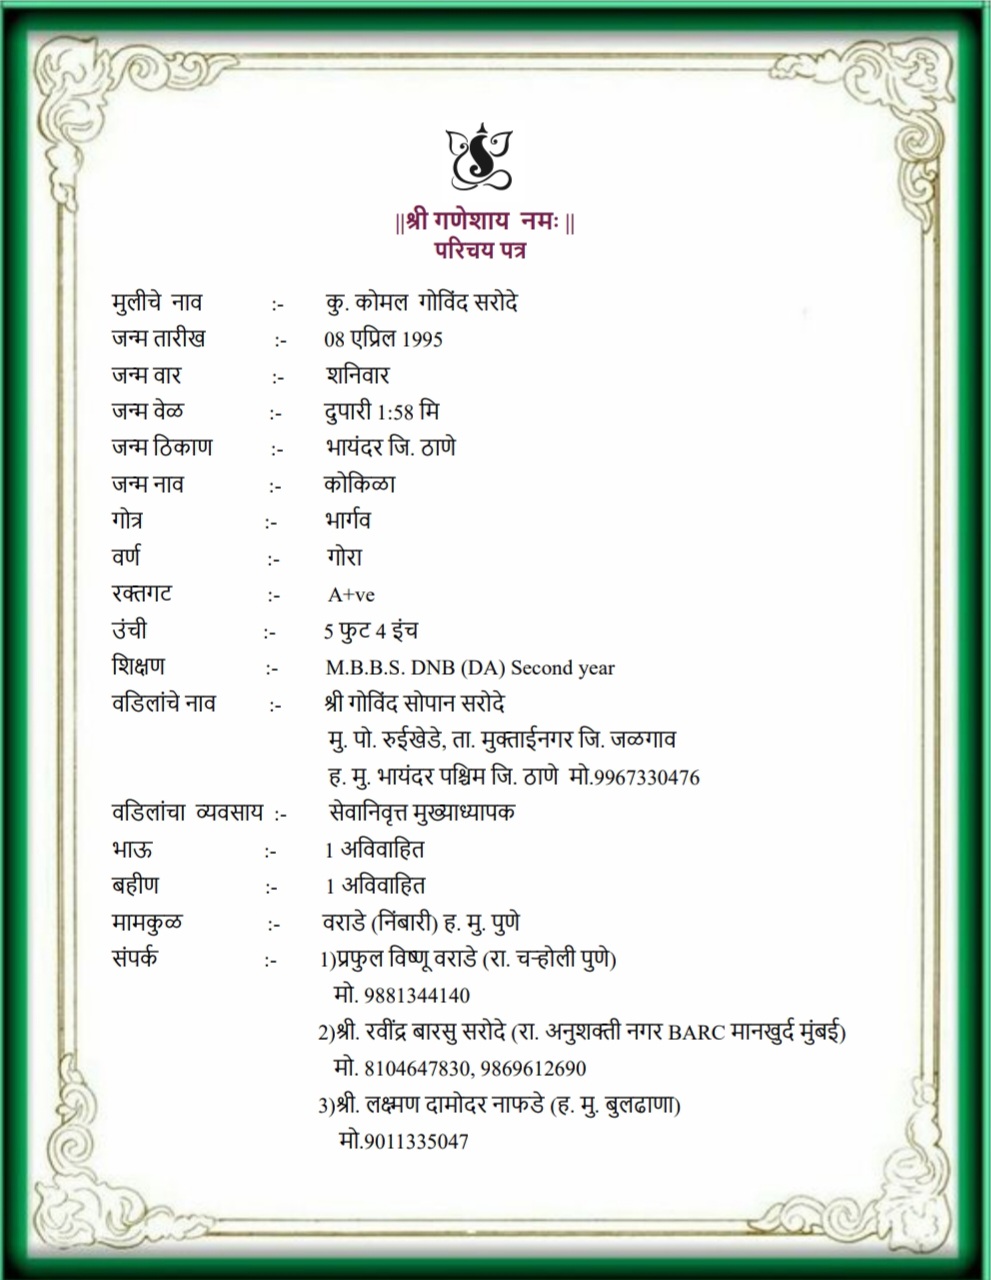 ||श्री गणेशाय नमः ||
परिचय पत्र
मुलीचे नाव :- कु. कोमल गोविंद सरोदे
जन्म तारीख :- 08 एप्रिल 1995
जन्म वार :- शनिवार
जन्म वेळ :- दुपारी 1:58 मि
जन्म ठिकाण :- भायंदर जि. ठाणे
जन्म नाव :- कोकिळा
गोत्र :- भार्गव
वर्ण :- गोरा
रक्तगट :- A+ve
उंची :- 5 फुट 4 इंच
शिक्षण :- M.B.B.S. DNB (DA) Second year
वडिलांचे नाव :- श्री गोविंद सोपान सरोदे
मु. पो. रुईखेडे, ता. मुक्ताईनगर जि. जळगाव
ह. मु. भायंदर पश्चिम जि. ठाणे मो.9967330476
वडिलांचा व्यवसाय :- सेवानिवृत्त मुख्याध्यापक
भाऊ :- 1 अविवाहित
बहीण :- 1 अविवाहित
मामकुळ :- वराडे (निंबारी) ह. मु. पुणे
संपर्क :- 1)प्रफुल विष्णू वराडे (रा. चऱ्होली पुणे)
मो. 9881344140
2)श्री. रवींद्र बारसु सरोदे (रा. अनुशक्ती नगर BARC मानखुर्द मुंबई)
मो. 8104647830, 9869612690
3)श्री. लक्ष्मण दामोदर नाफडे (ह. मु. बुलढाणा)
मो.9011335047